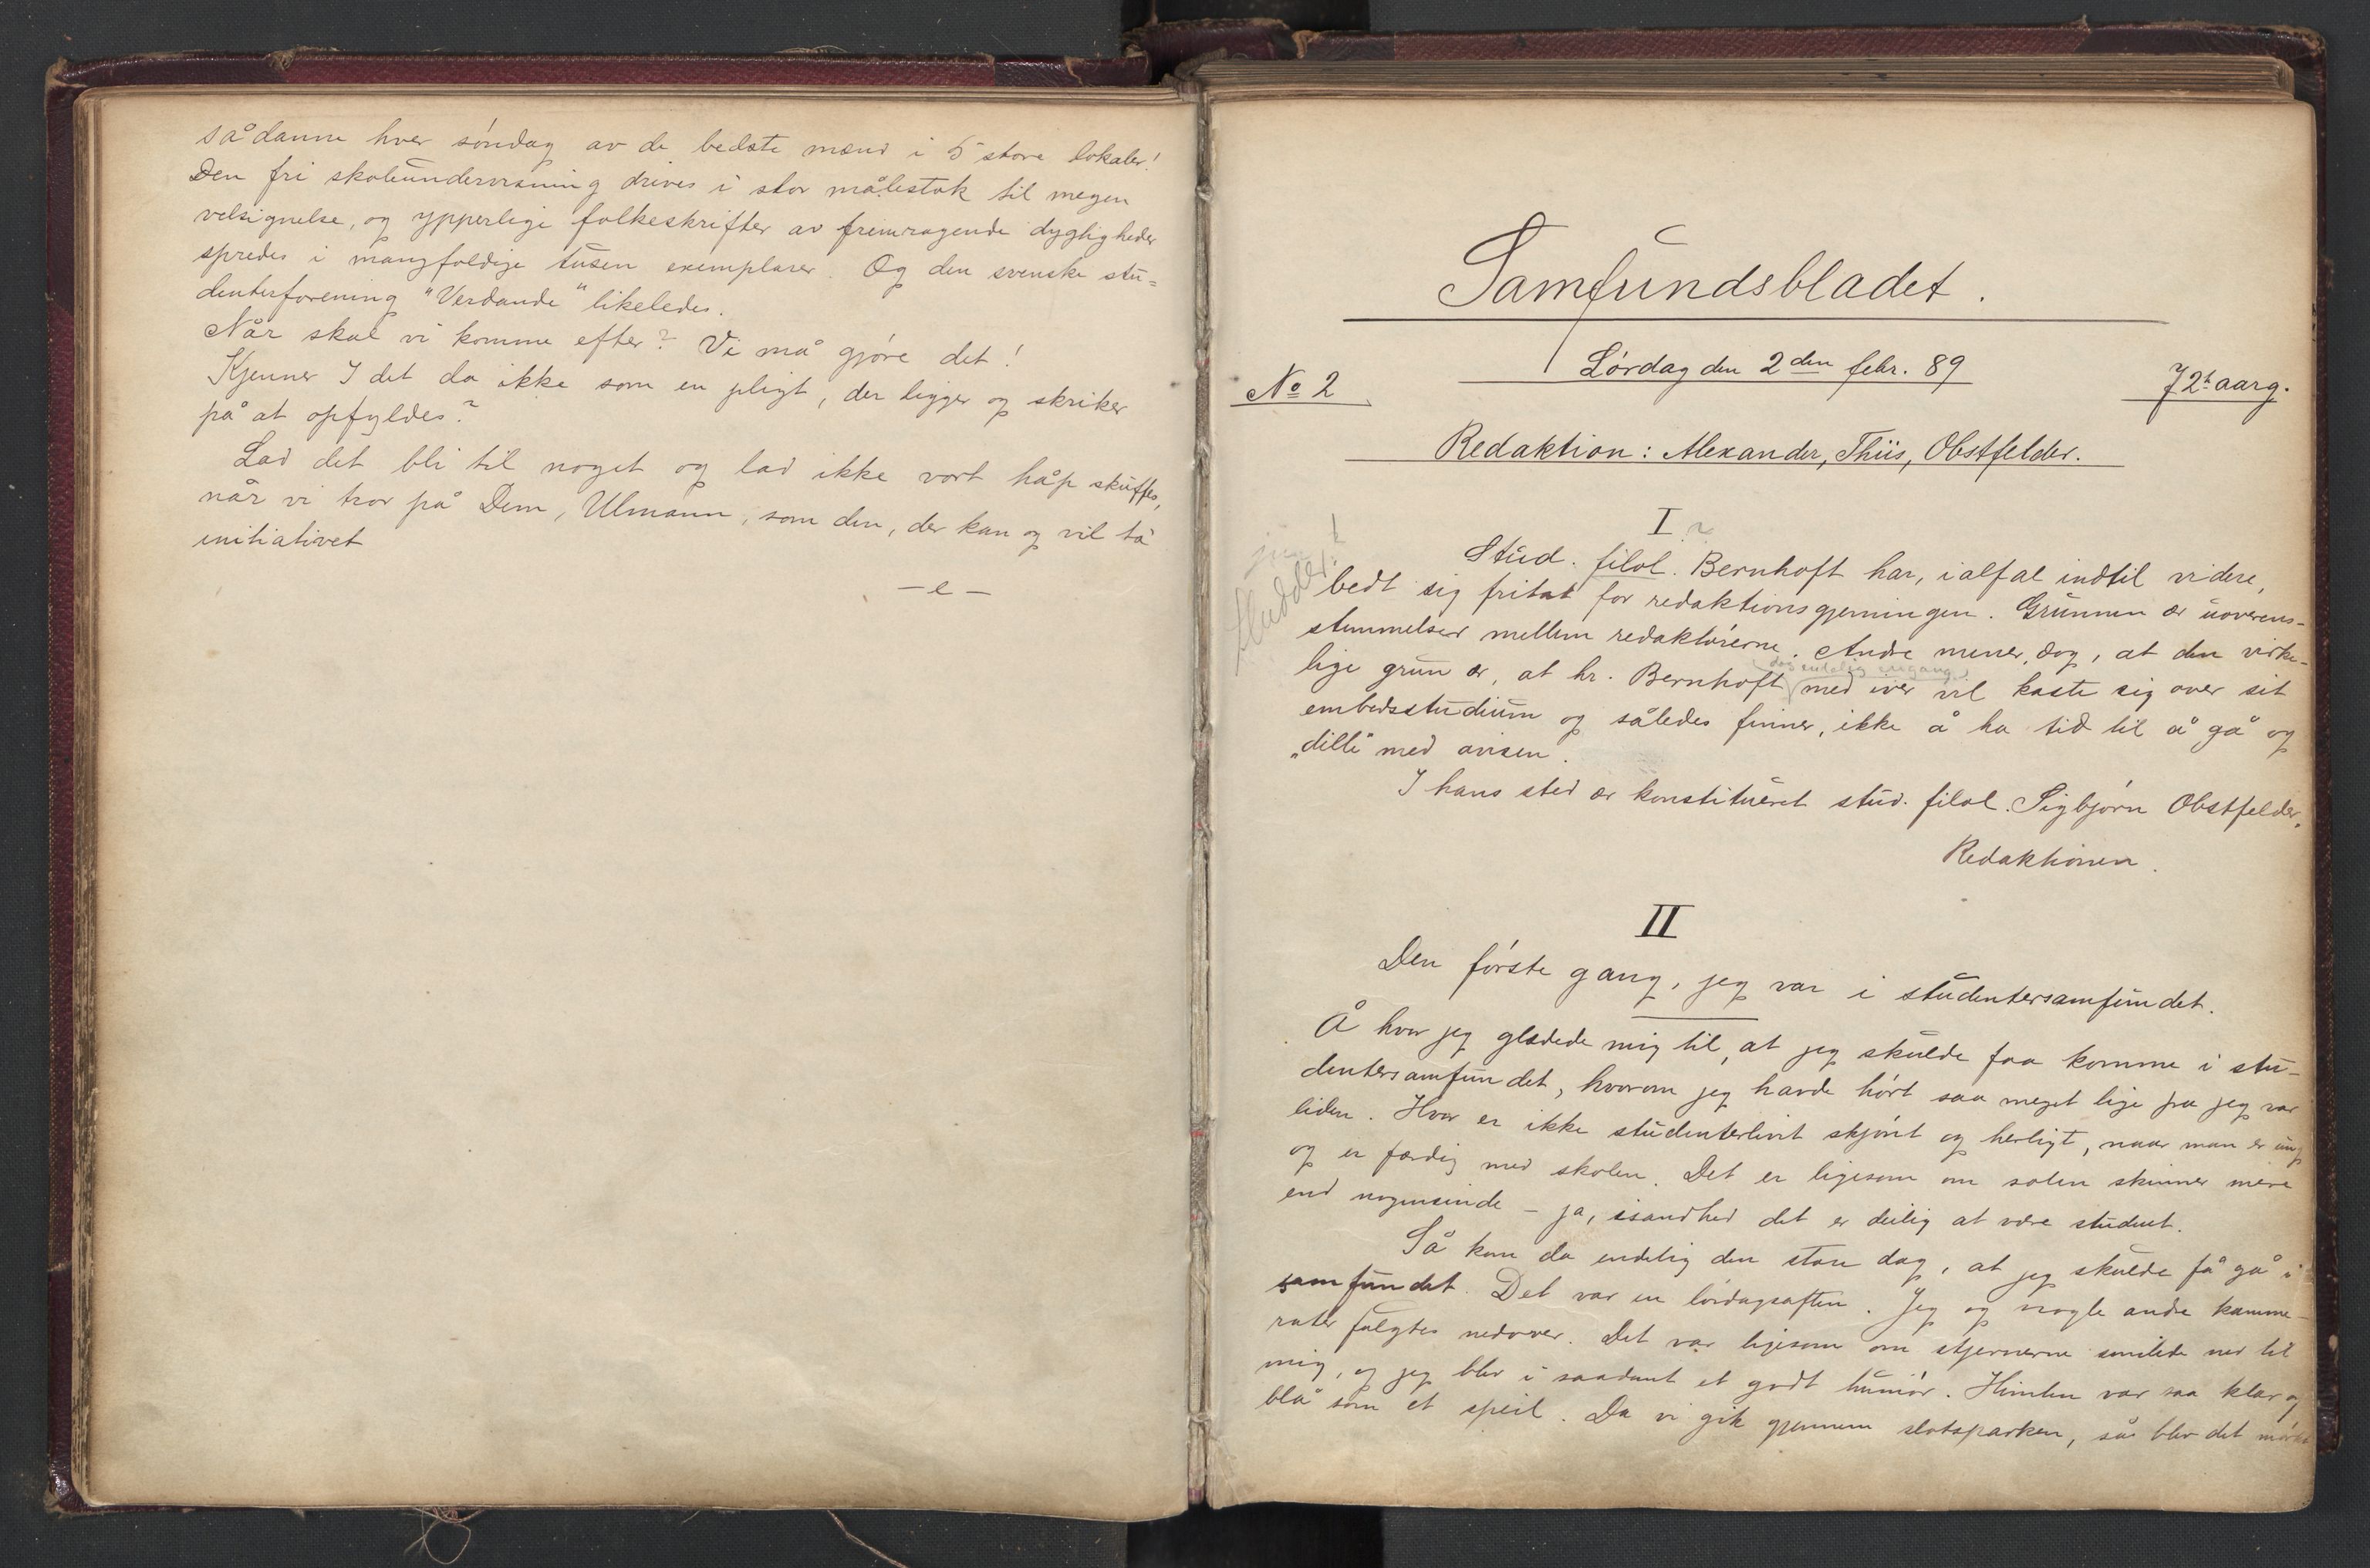 sådanne hver söndag av de bedste mænd i 5 store lokaler!
Den fri skoleundervisning drives i stor målestok til megen
velsignelse, og ypperlige folkeskrifter av fremragende dygtigheder
spredes i mangfoldige tusen exemplarer. Og den svenske stu=
denterforening "Verdande" likeledes.
Når skal vi komme efter? Vi må gjöre det!
Kjenner I det da ikke som en pligt, der ligger og skriker
på at opfyldes?
Lad det bli til noget og lad ikke vort håp skuffes,
når vi tror på Dem, Ulmann, som den, der kan og vil ta
initiativet
— e —
Samfundsbladet.
Lördag den 2den febr. 89
No 2
72t aarg.
Redaktion: Alexander, Thiis, Obstfelder.
I
Sludder!
Stud. filol. Bernhoft har, ialfal indtil videre,
bedt sig fritat for redaktionsgjerningen. Grunnen ær uoverens-
stemmelser mellem redaktörerne. Andre mener, dog, at den virke-
dog endelig engang
lige grun ær, at hr. Bernhoft med iver vil kaste sig over sit
embedsstudium og således finner, ikke å ha tid til å gå og
„dille" med avisen.
I hans sted ær konstitueret stud. filol. Sigbjörn Obstfelder.
Redaktionen.
II
Den förste gang, jeg var i studentersamfundet.
Å hvor jeg glædede mig til, at jeg skulde faa komme i stu-
dentersamfundet, hvorom jeg havde hört saa meget lige fra jeg var
liden. Hvor er ikke studenterlivet skjönt og herligt, naar man er ung
og er færdig med skolen. Det er ligesom om solen skinner mere
end nogensinde – ja, isandhed det er deilig at være student.
Så kom da endelig den store dag, at jeg skulde få gå i
samfundet. Det var en lördagsaften. Jeg og nogle andre kamme-
rater fulgtes nedover. Det var ligesom om stjernerne smilede ned til
mig, og jeg blev i saadant et godt humör. Himlen var saa klar og
blå som et speil. Da vi gik gjennem slotsparken, så blev det mörkt